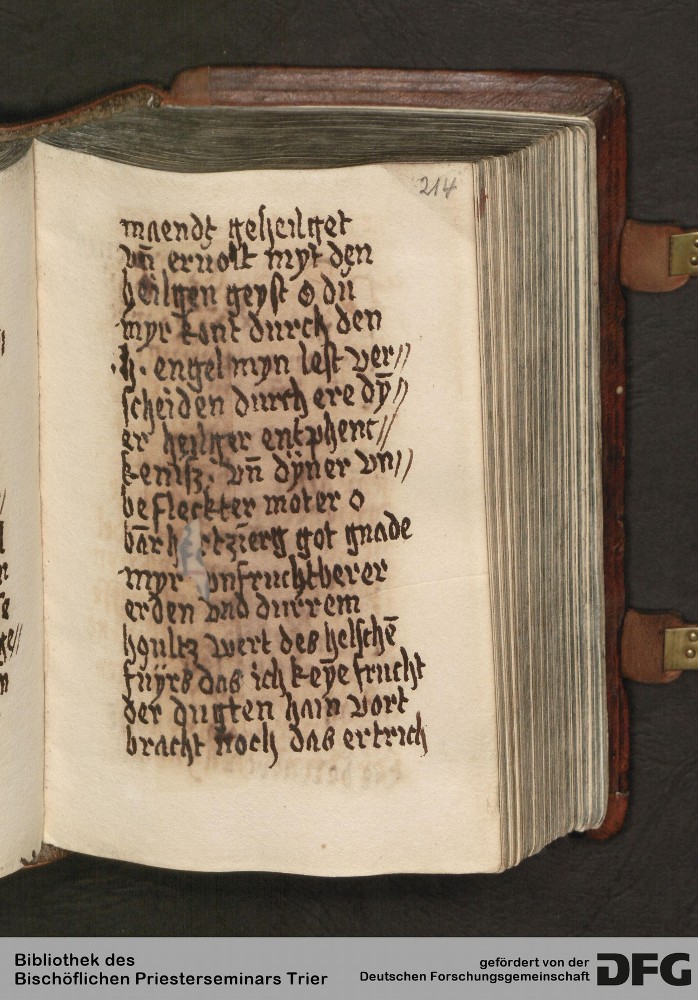 214
maendt geheilget
vn̄ eruolt myt den
heilgen geyst o du
myr kont durch den
.h. engel myn lest ver//
scheiden durch ere dȳ//
er heilger entphenc//
kenisz. vn̄ dyner vn//
befleckter moter o
bārh rtzierg got gnade
myr vnfruchtberer
erden vnd durrem
houltz wert des helschē
fuÿrs das ich keȳe frucht
der dugten hain vort
bracht noch das ertrich
Bibliothek des
Bischöflichen Priesterseminars Trier
gefördert von der
Deutschen Forschungsgemeinschaft
DFG